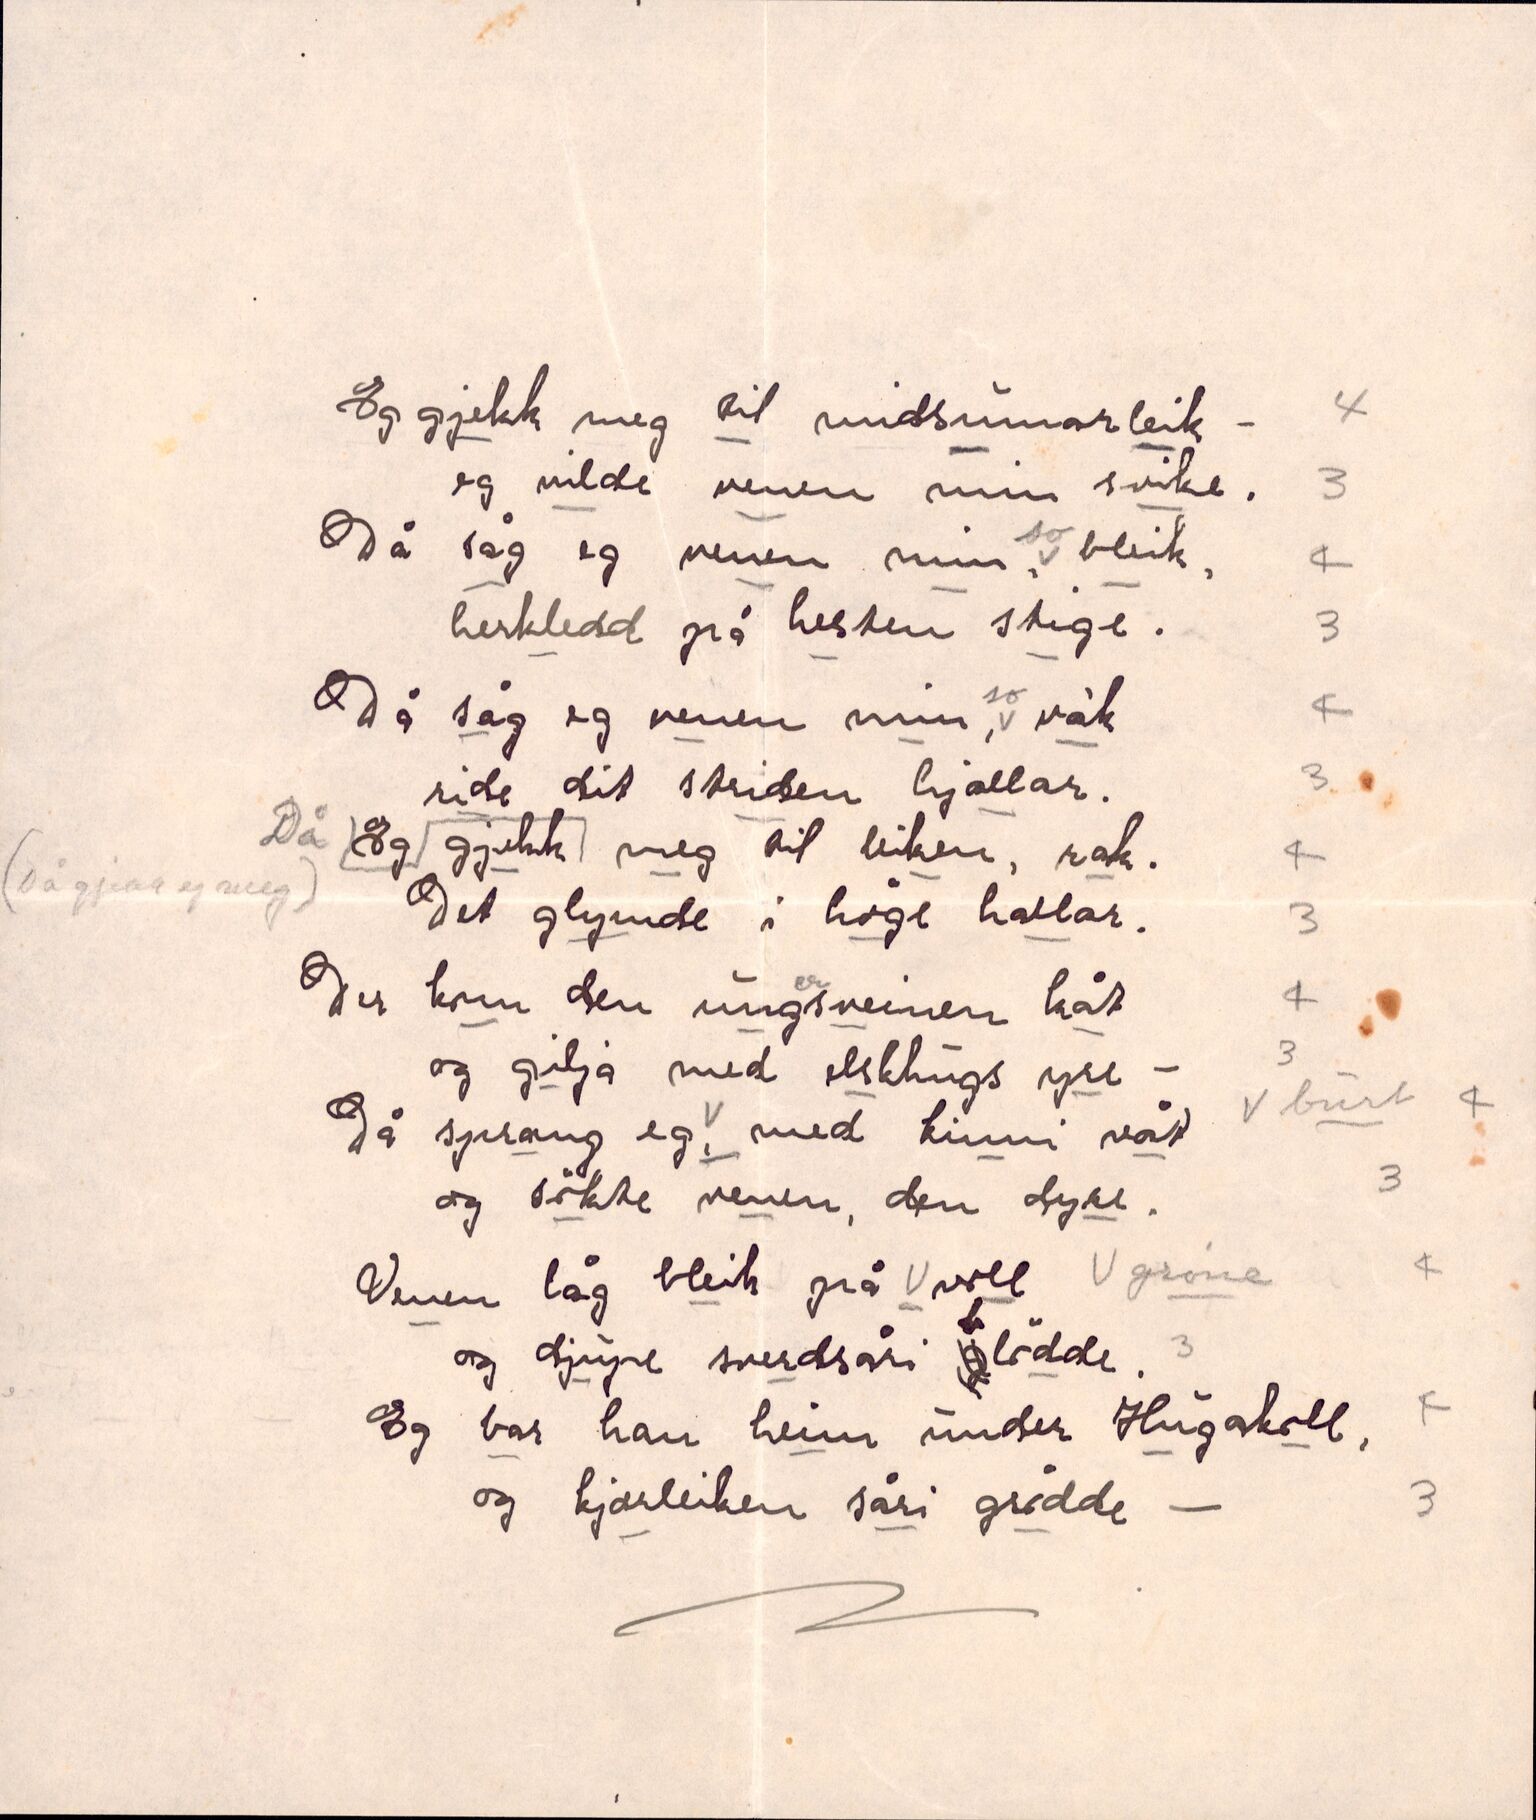 Eg gjekk meg til midsumarleik – 4
eg vilde venen min svike. 3
Då såg eg venen min, so bleik, 4
herkledd på hesten stige. 3
Då såg eg venen min, so våk 4
ride dit striden hjallar. 3
Då Eg gjekk meg til leiken, rak. 4
(Då gjekk eg meg)
Det glymde i høge hallar. 3
Der kom den ungersveinen kåt 4
og gilja med elskhugs yre – 3
Då sprang eg, V med kinni våt V burt 4
og søkte venen, den dyre. 3
Venen låg bleik på V voll V grøne 4
og djupe sverdsåri blødde. 3
Eg bar han heim under Hugakoll, 4
og kjærleiken såri grødde – 3